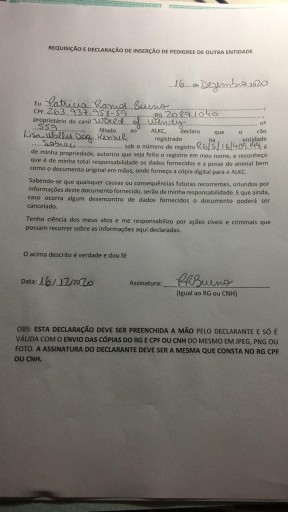 REQUISIÇÃO E DECLARAÇÃO DE INSERÇÃO DE PEDIGREE DE OUTRA ENTIDADE
16 de Dezembro 2020
Eu Patricia Ramol Bueno
CPF RG
proprietário do canil World of Wendy nº
559 filiado ao ALKC, declaro que o cão
Lisa Waller Dog Kennel registrado na entidade
Sobraci sob o número de registro é
de minha propriedade, autorizo que seja feito o registro em meu nome, e reconheço
que é de minha total responsabilidade os dados fornecidos e a posse do animal bem
como o documento original em mãos, onde forneço a cópia digital para o ALKC.
Sabendo-se que quaisquer causas ou consequências futuras recorrentes, oriundos por
informações deste documento fornecido, serão de minha responsabilidade. E que ainda,
caso ocorra algum desencontro de dados fornecidos o documento poderá ser
cancelado.
Tenho ciência dos meus atos e me responsabilizo por ações cíveis e criminais que
possam recorrer sobre as informações aqui declaradas.
O acima descrito é verdade e dou fé
Data: 16/12/2020 Assinatura: PRBueno
(Igual ao RG ou CNH)
OBS: ESTA DECLARAÇÃO DEVE SER PREENCHIDA A MÃO PELO DECLARANTE E SÓ É
VÁLIDA COM O ENVIO DAS CÓPIAS DO RG E CPF OU CNH DO MESMO EM JPEG, PNG OU
FOTO. A ASSINATURA DO DECLARANTE DEVE SER A MESMA QUE CONSTA NO RG CPF
OU CNH.